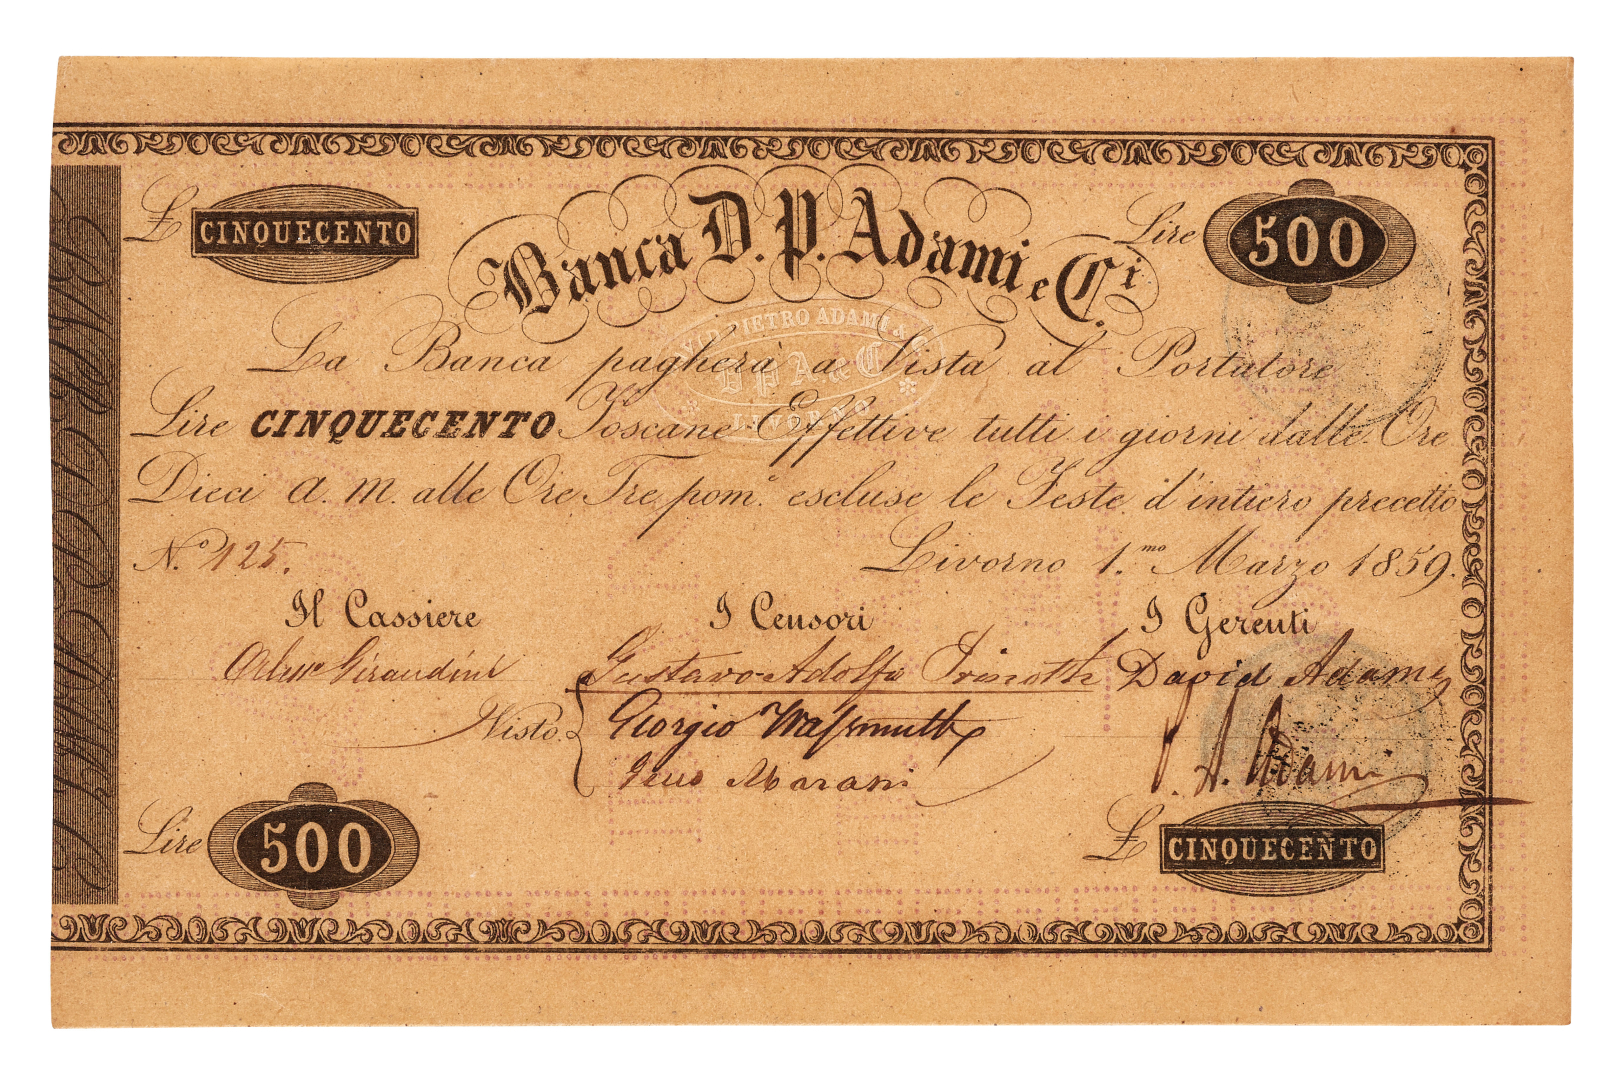 £ CINQUECENTO
Banca D. P. Adami e C.i
Lire 500
PIETRO ADAMI &
D P A & C
LIVORNO
La Banca pagherà a Vista al Portatore
Lire CINQUECENTO Toscane Effettive tutti i giorni dalle Ore
Dieci a. m. alle Ore Tre pom.e escluse le Feste d'intiero precetto
N.o 125.
Livorno 1.mo Marzo 1859.
Il Cassiere
I Censori
I Gerenti
Giraudini
Gustavo Adolfo
David Adami
Visto
Giorgio Wassmuth
Marani
A. Adami
Lire 500
£ CINQUECENTO